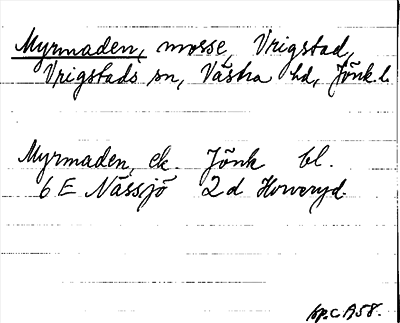 Myrmaden, mosse, Vrigstad,
Vrigstads sn, Västra hd, Jönk. l.
Myrmaden, ek. Jönk bl.
6 E Nässjö 2 d Horveryd.
kp. C A 58.